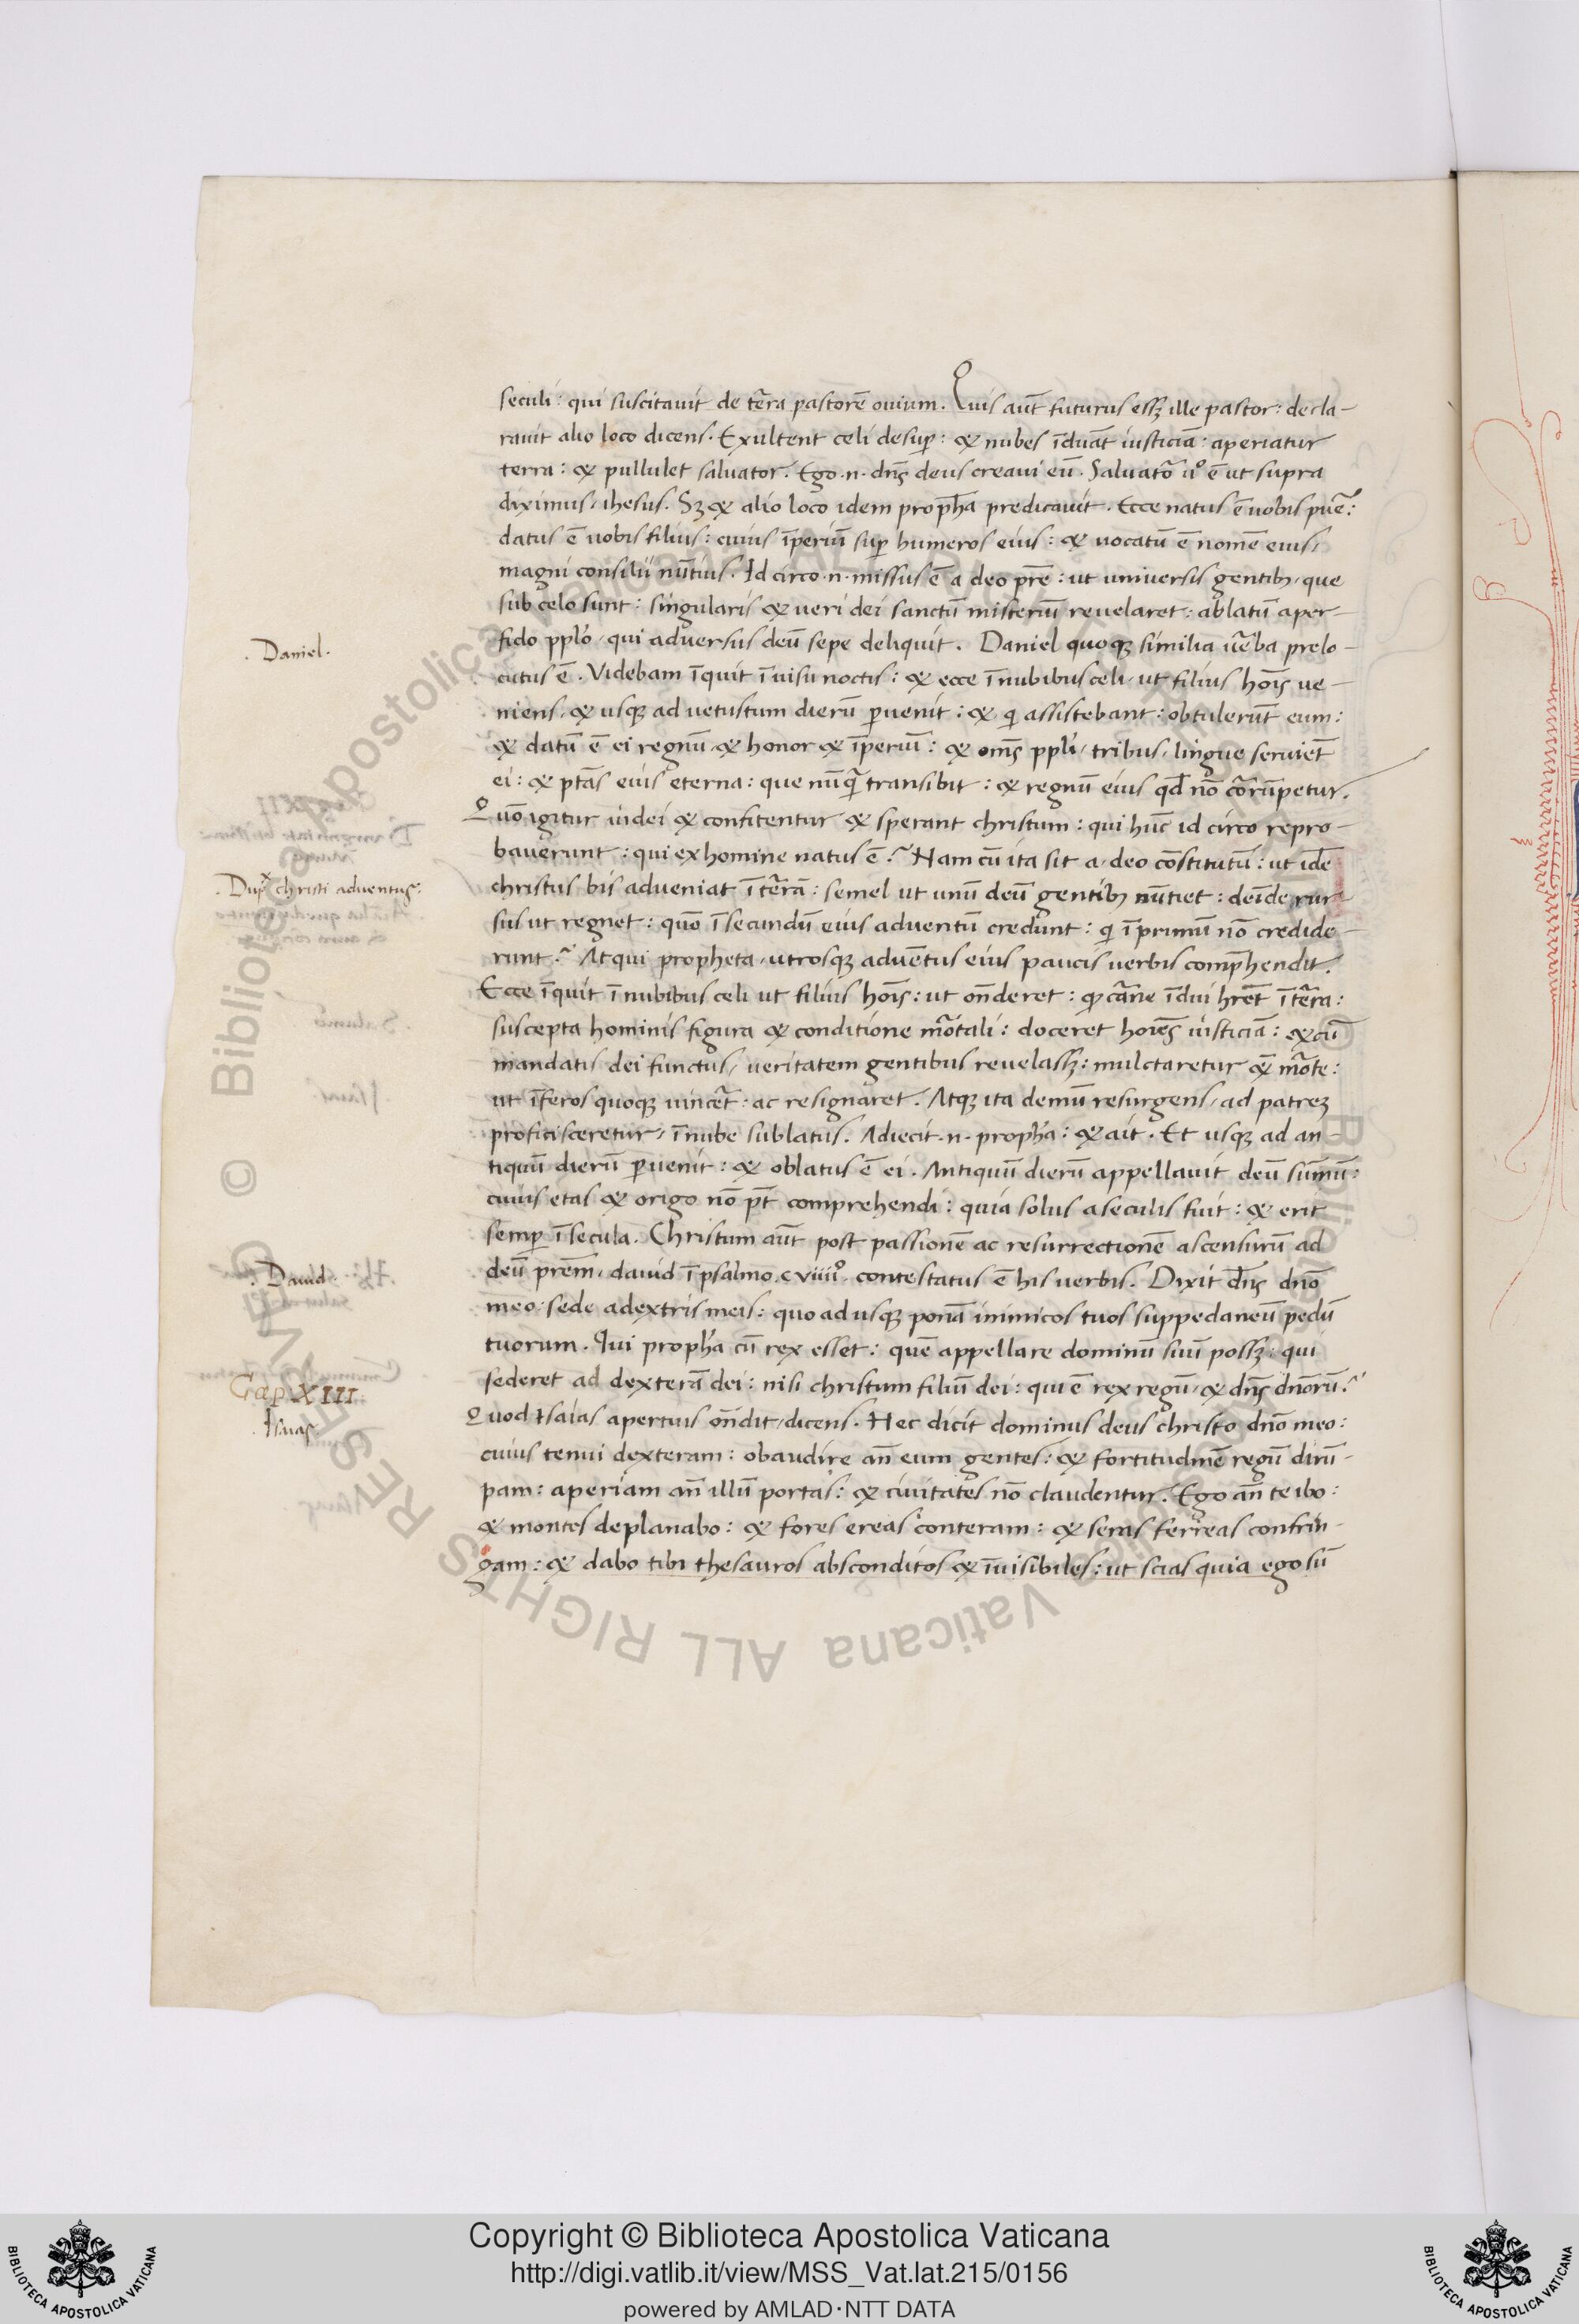 seculi: qui suscitauit de tẽra pastorẽ ouium. Quis aut̃ futurus essꝫ ille pastor: decla-
rauit alio loco dicens. Exultent celi desuꝑ: & nubes ĩduãt iusticiã: aperiatur
terra: & pullulet saluator. Ego .n. dñs deus creaui eũ. Saluatõ uͦ ẽ ut supra
diximus, ihesus. Sꝫ & alio loco idem propħa predicauit. Ecce natus ẽ uobis puẽ:
datus ẽ uobis filius: cuius ĩperiũ suꝑ humeros eius: & uocatũ ẽ nomẽ eius,
magni consilii nũtius. Id circo .n. missus ẽ a deo pr̃e: ut universis gentibꝫ, que
sub celo sunt: singularis & veri dei sanctũ misteriũ revelaret: ablatũ a per-
fido ppl̃o, qui adversus deũ sepe deliquit. Daniel quoqꝫ similia uẽba prelo-
. Daniel.
cutus ẽ. Videbam ĩquit ĩ uisu noctis: & ecce ĩ nubibus celi, ut filius hoĩs ue-
niens, & usqꝫ ad uetustum dierũ ꝑuenit: & qi assistebant: obtulerũt eum:
& datũ ẽ ei regnũ, & honor & ĩperiũ: & om̃s ppl̃i, tribus, lingue seruiẽt
ei: & ptãs eius eterna: que nũqᷓ transibit: & regnũ eius qd̃ nõ cõrũpetur.
Quõ igitur iudei & confitentur & sperant christum: qui hũc id circo repro-
bauerunt: qui ex homine natus ẽ? Nam cũ ita sit a deo cõstitutũ: ut idẽ
christus bis adveniat ĩ tẽrã: semel ut unũ deũ gentibꝫ nũtiet: deĩde rur-
. Dupˣ christi adventus:
sus ut regnet: quõ ĩ secundũ eius adventũ credunt: qi ĩ primũ nõ credide-
runt? Atqui propheta, utrosqꝫ advẽtus eius paucis verbis comp̃hendit.
Ecce ĩquit ĩ nubibus celi ut filius hoĩs: ut oñderet: ꝙ cãrne ĩdui hr̃et ĩ tẽra:
suscepta hominis figura & conditione mõtali: doceret hoĩes iusticiã: & cũ
mandatis dei functus, veritatem gentibus reuelassꝫ: mulctaretur & mõte:
ut ĩferos quoqꝫ uincẽt: ac resignaret. Atqꝫ ita demũ resurgens, ad patreꝫ
proficisceretur, ĩ nube sublatus. Adiecit .n. propħa: & ait. Et usqꝫ ad an-
tiquũ dierũ ꝑuenit: & oblatus ẽ ei. Antiquũ dierũ appellauit deũ sum̃ũ:
cuius etas & origo nõ pt̃ comprehendi: quia solus a seculis fuit: & erit
semꝑ ĩ secula. Christum aut̃ post passionẽ ac resurrectionẽ ascensurũ ad
deũ pr̃em, dauid ĩ psalmo .cviiiiͦ. contestatus ẽ his verbis. Dixit dñs dño
. Dauid.
meo: sede a dextris meis: quo ad usqꝫ ponã inimicos tuos suppedaneũ pedũ
tuorum. Qui propħa cũ rex esset: quẽ appellare dominũ suũ possꝫ: qui
sederet ad dexterã dei: nisi christum filiũ dei: qui ẽ rex regũ, & dñs dñorũ?
Cap. XIII:
Quod Isaias apertius oñdit, dicens. Hec dicit dominus deus christo dño meo:
. Isaias.
cuius tenui dexteram: obaudire añ eum gentes: & fortitudinẽ regũ dirũ-
pam: aperiam añ illũ portas: & civitates nõ claudentur. Ego añ te ibo:
& montes deplanabo: & fores ereas conteram: & seras ferreas confrin-
gam: & dabo tibi thesauros absconditos & ĩuisibiles: ut scias quia ego sũ
Copyright © Biblioteca Apostolica Vaticana
http://digi.vatlib.it/view/MSS_Vat.lat.215/0156
powered by AMLAD·NTT DATA
BIBLIOTECA APOSTOLICA VATICANA
BIBLIOTECA APOSTOLICA VATICANA